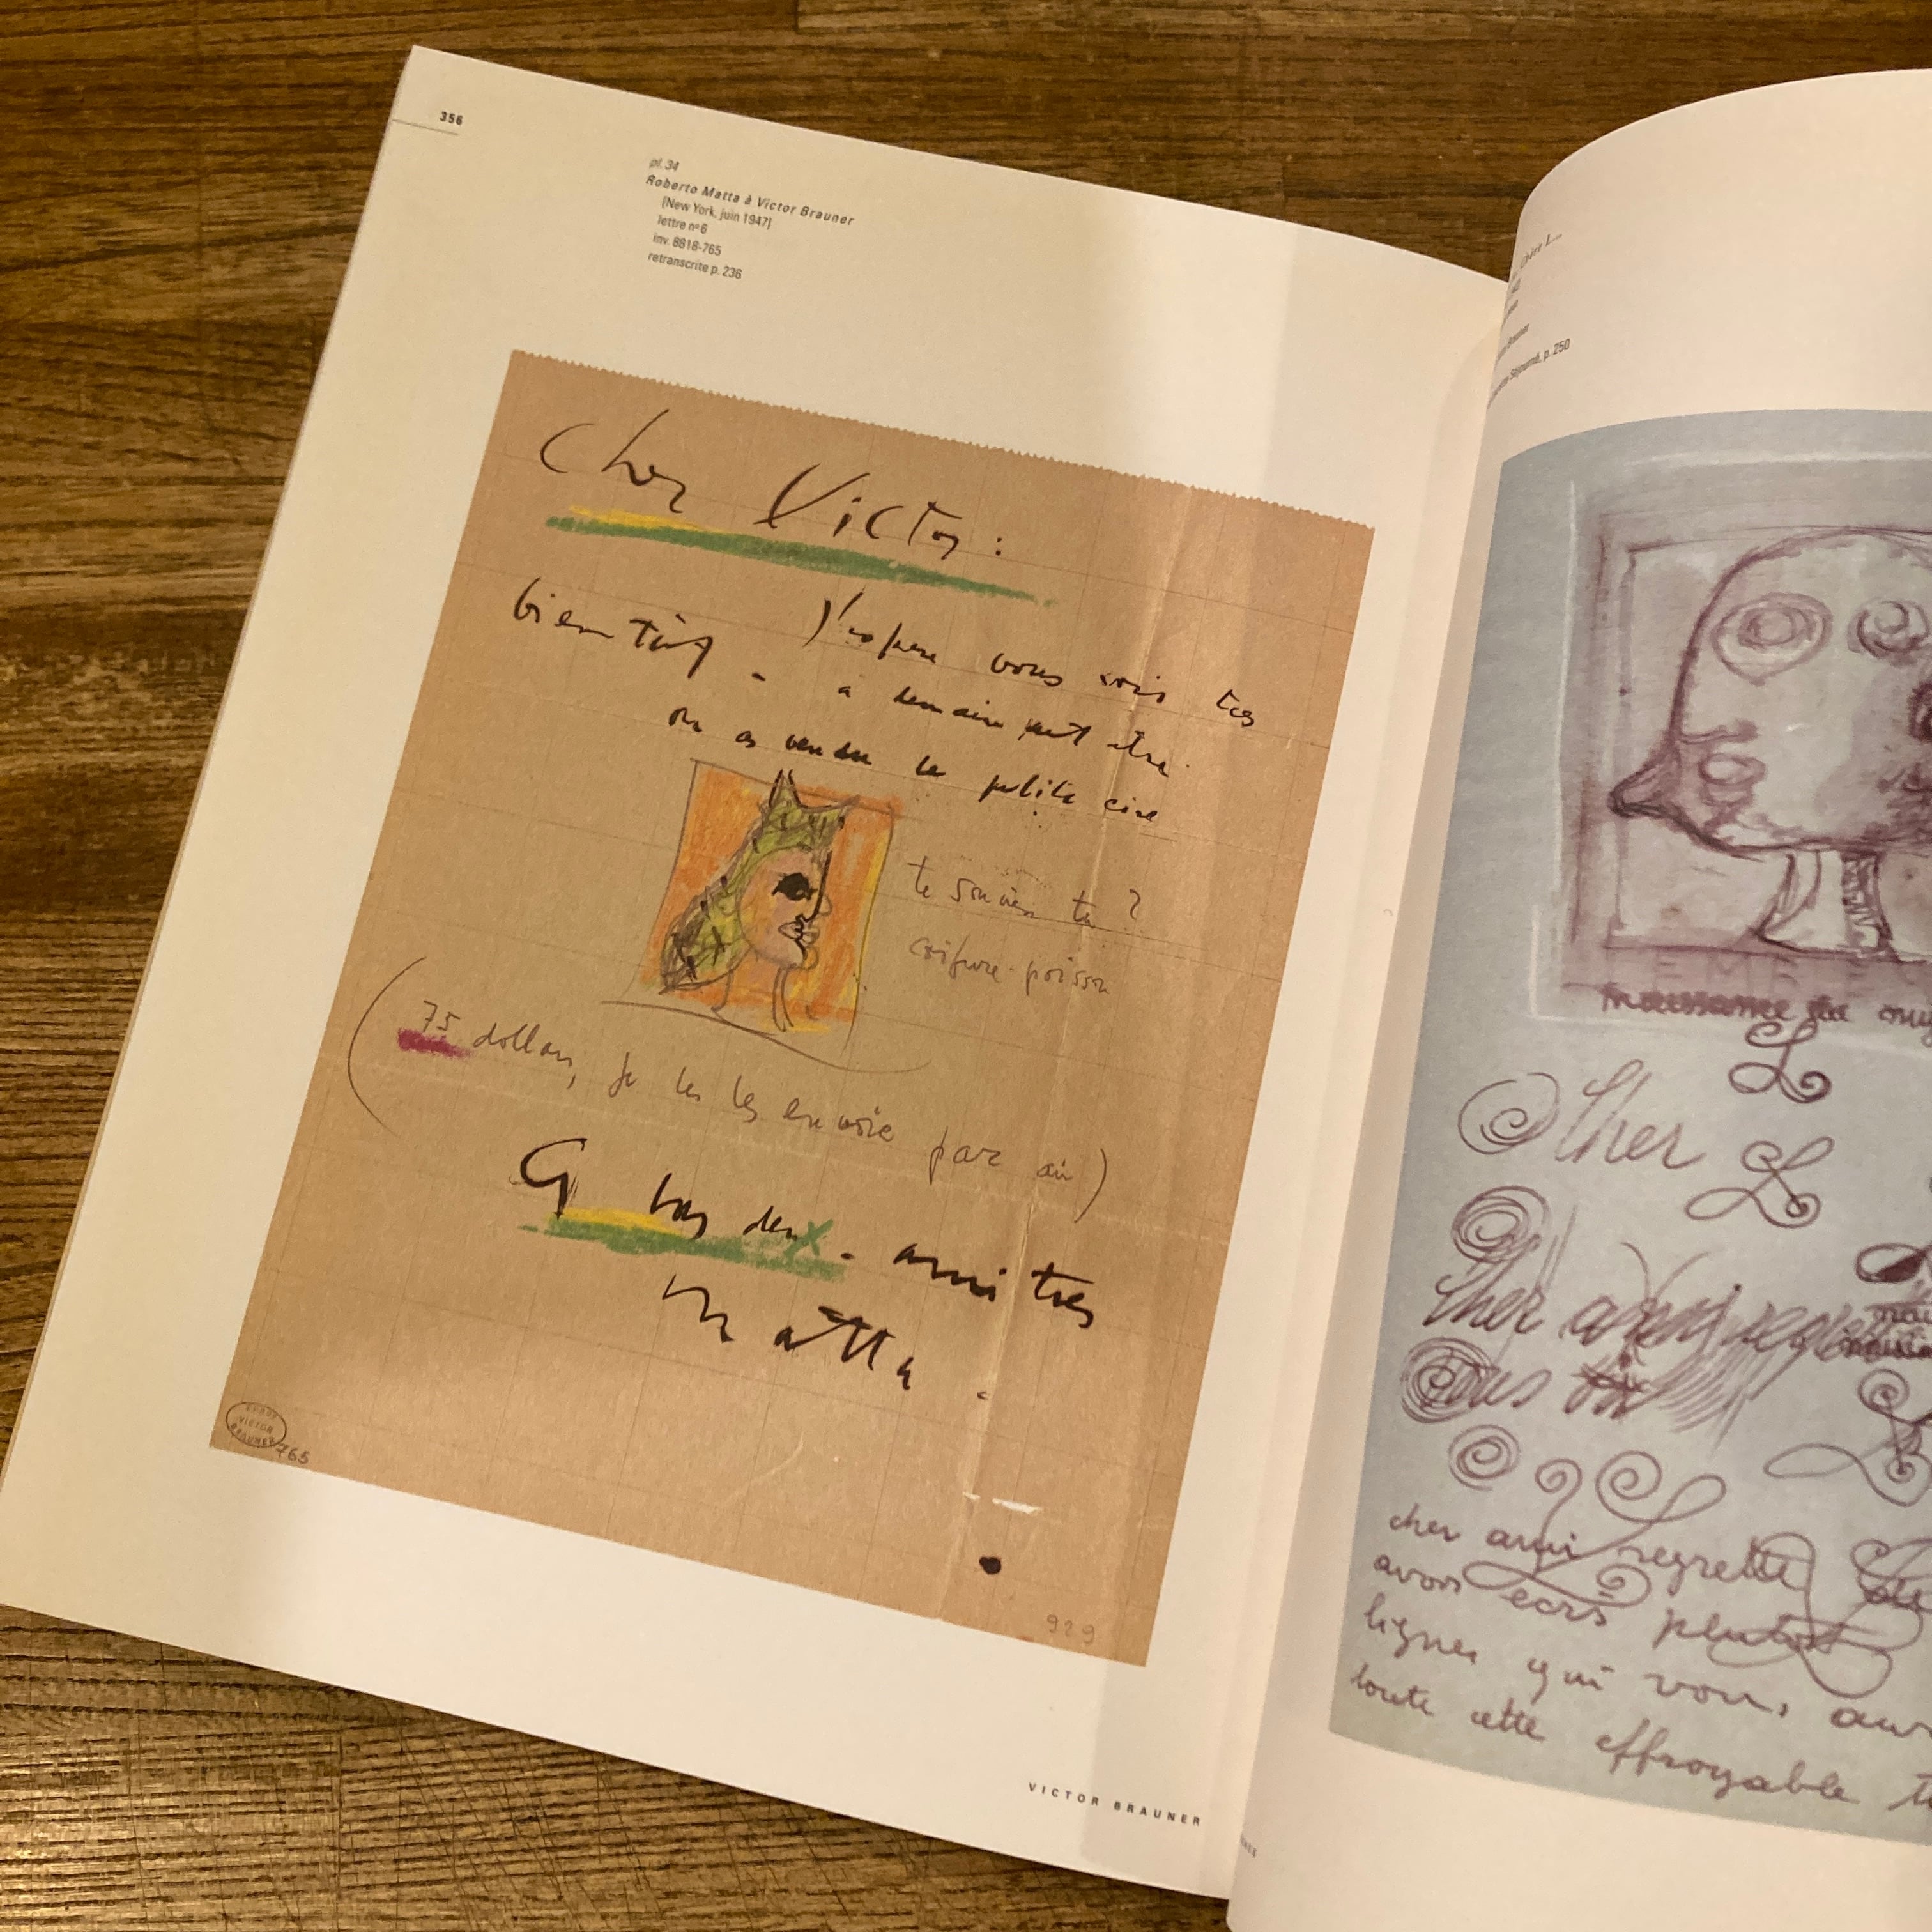 356
pl. 34
Roberto Matta à Victor Brauner
[New York, juin 1947]
lettre nº 6
inv. 8818-765
retranscrite p. 236
Cher Victor :
J'espere vous voir tres
bientôt - à demain peut etre
on as vendu la petite cire
te souvien tu ?
coifure-poisson
(75 dollars, je les envoie par air)
vos deux - ami tres
matta .
VICTOR
BRAUNER
765
929
VICTOR BRAUNER
p. 250
naissance du
Cher
Cher ami
vous
cher ami regrette
avoir ecris plutot
lignes qui vous
toute cette effroyable